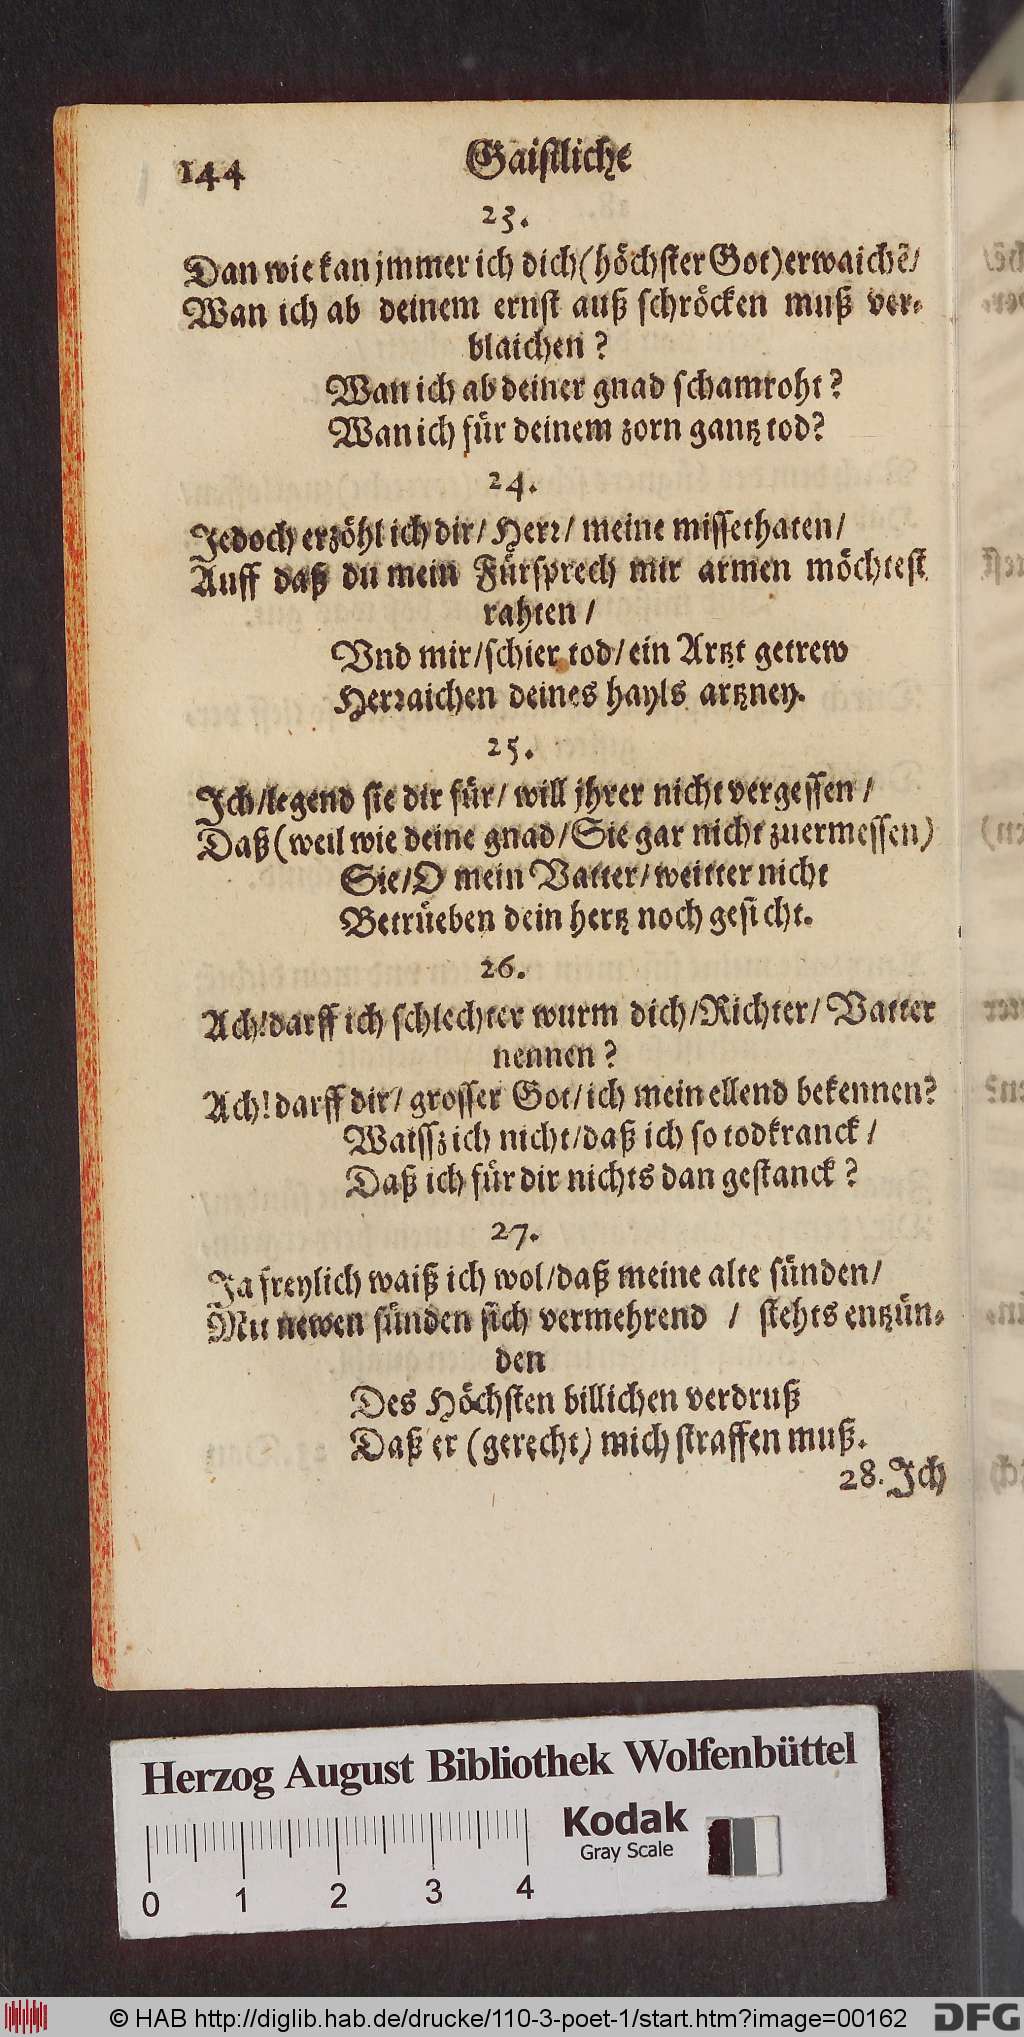 144
Gaistliche
23.
Dan wie kan jmmer ich dich (höchster Got) erwaichẽ/
Wan ich ab deinem ernst auß schröcken muß ver-
blaichen?
Wan ich ab deiner gnad schamroht?
Wan ich für deinem zorn gantz tod?
24.
Jedoch erzöhl ich dir/ Herr/ meine missethaten/
Auff daß du mein Fürsprech mir armen möchtest
rahten/
Vnd mir/schier tod/ein Artzt getrew
Herraichen deines hayls artzney.
25.
Ich/legend sie dir für/ will jhrer nicht vergessen/
Daß (weil wie deine gnad/Sie gar nicht zuermessen)
Sie/O mein Vatter/weitter nicht
Betrüeben dein hertz noch gesicht.
26.
Ach!darff ich schlechter wurm dich/Richter/ Vatter
nennen?
Ach! darff dir/ grosser Got/ich mein ellend bekennen?
Waissz ich nicht/daß ich so todkranck/
Daß ich für dir nichts dan gestanck?
27.
Ja freylich waiß ich wol/daß meine alte sünden/
Mit newen sünden sich vermehrend / stehts entzün-
den
Des Höchsten billichen verdruß
Daß er (gerecht) mich straffen muß.
28. Ich
Herzog August Bibliothek Wolfenbüttel
Kodak
Gray Scale
0 1 2 3 4
© HAB http://diglib.hab.de/drucke/110-3-poet-1/start.htm?image=00162
DFG